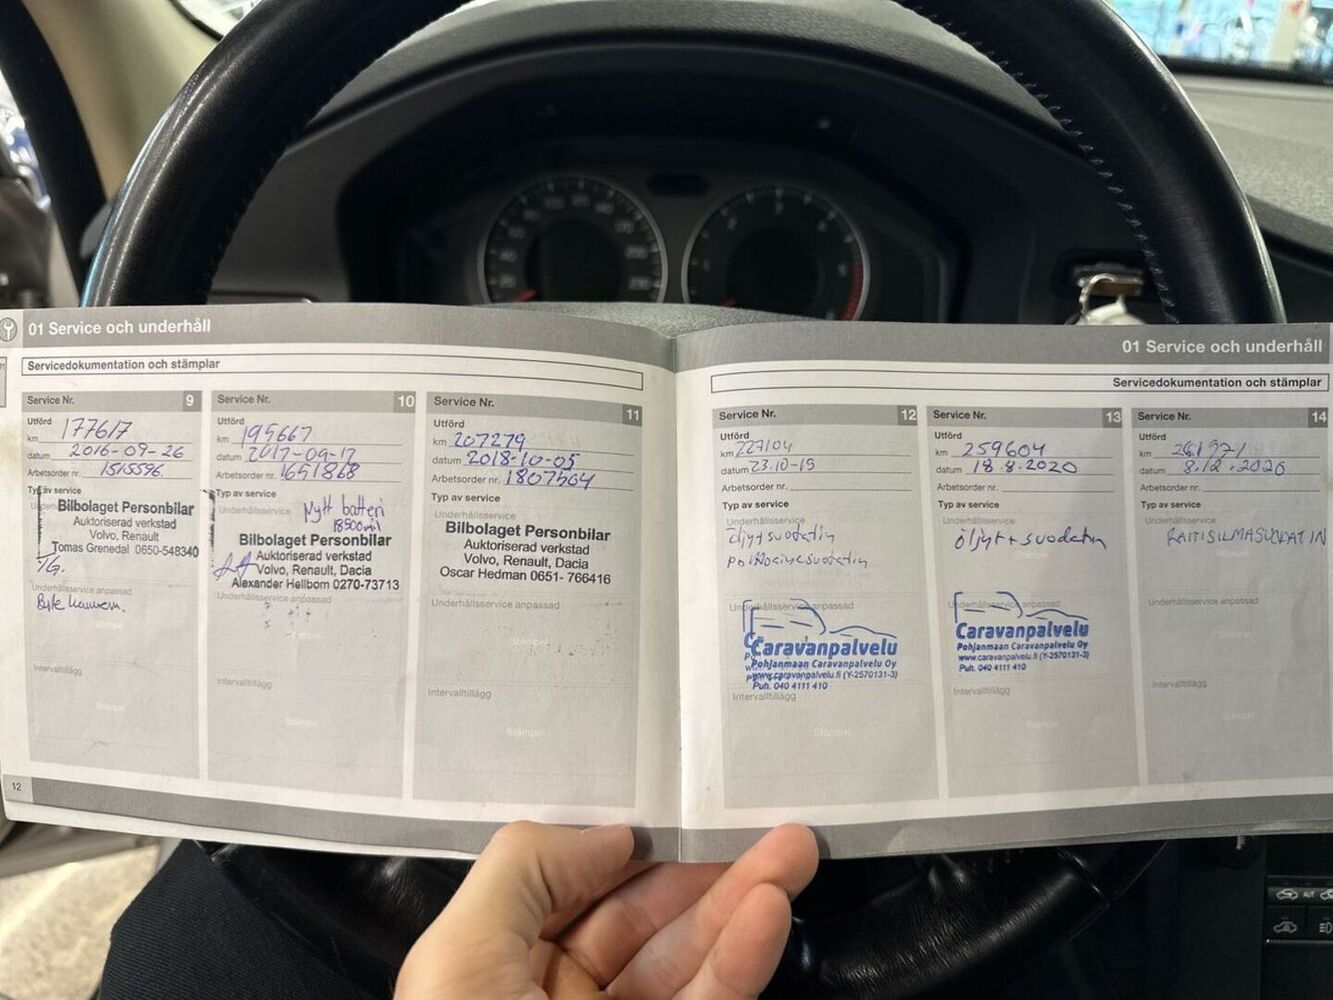 01 Service och underhåll
Servicedokumentation och stämplar
Service Nr. 9
Utförd
km 177617
datum 2016-09-26
Arbetsorder nr. 1515596
Typ av service
Bilbolaget Personbilar
Auktoriserad verkstad
Volvo, Renault
Tomas Grenedal 0650-548340
Underhållsservice anpassad
Stämpel
Intervalltillägg
Stämpel
12
Service Nr. 10
Utförd
km 195667
datum 2017-09-17
Arbetsorder nr. 1651868
Typ av service
Underhållsservice
Nytt batteri
18500mil
Bilbolaget Personbilar
Auktoriserad verkstad
Volvo, Renault, Dacia
Alexander Hellbom 0270-73713
Underhållsservice anpassad
Intervalltillägg
Stämpel
Service Nr. 11
Utförd
km 207279
datum 2018-10-05
Arbetsorder nr. 1807564
Typ av service
Underhållsservice
Bilbolaget Personbilar
Auktoriserad verkstad
Volvo, Renault, Dacia
Oscar Hedman 0651- 766416
Underhållsservice anpassad
Stämpel
Intervalltillägg
Stämpel
01 Service och underhåll
Servicedokumentation och stämplar
Service Nr. 12
Utförd
km 227104
datum 23.10-19
Arbetsorder nr.
Typ av service
Underhållsservice
öljyt suodatin
polttoainesuodatin
Underhållsservice anpassad
Caravanpalvelu
Pohjanmaan Caravanpalvelu Oy
www.caravanpalvelu.fi (Y-2570131-3)
Puh. 040 4111 410
Intervalltillägg
Stämpel
Service Nr. 13
Utförd
km 259604
datum 18.8.2020
Arbetsorder nr.
Typ av service
Underhållsservice
öljyt + suodatin
Underhållsservice anpassad
Caravanpalvelu
Pohjanmaan Caravanpalvelu Oy
www.caravanpalvelu.fi (Y-2570131-3)
Puh. 040 4111 410
Intervalltillägg
Stämpel
Service Nr. 14
Utförd
km
datum 8.12.2020
Arbetsorder nr.
Typ av service
Underhållsservice
RAITISILMASUODATIN
Underhållsservice anpassad
Stämpel
Intervalltillägg
Stämpel
AUT